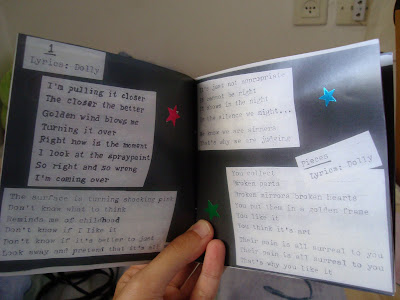 1
Lyrics: Dolly
I'm pulling it closer
The closer the better
Golden wind blows me
Turning it over
Right now is the moment
I look at the spraypoint
So right and so wrong
I'm coming over
The surface is turning shocking pink
Don't know what to think
Reminds me of childhood
Don't know if I like it
Don't know if it's better to just
Look away and pretend that it's all
It's just not appropriate
It cannot be right
It glows in the night
In the silence we might...
We know we are sinners
That's why we are
Pieces
Lyrics: Dolly
You collect
Broken parts
Broken mirrors broken hearts
You put them in a golden frame
You like it
You think it's art
Their pain is all surreal to you
Their pain is all surreal to you
That's why you like it